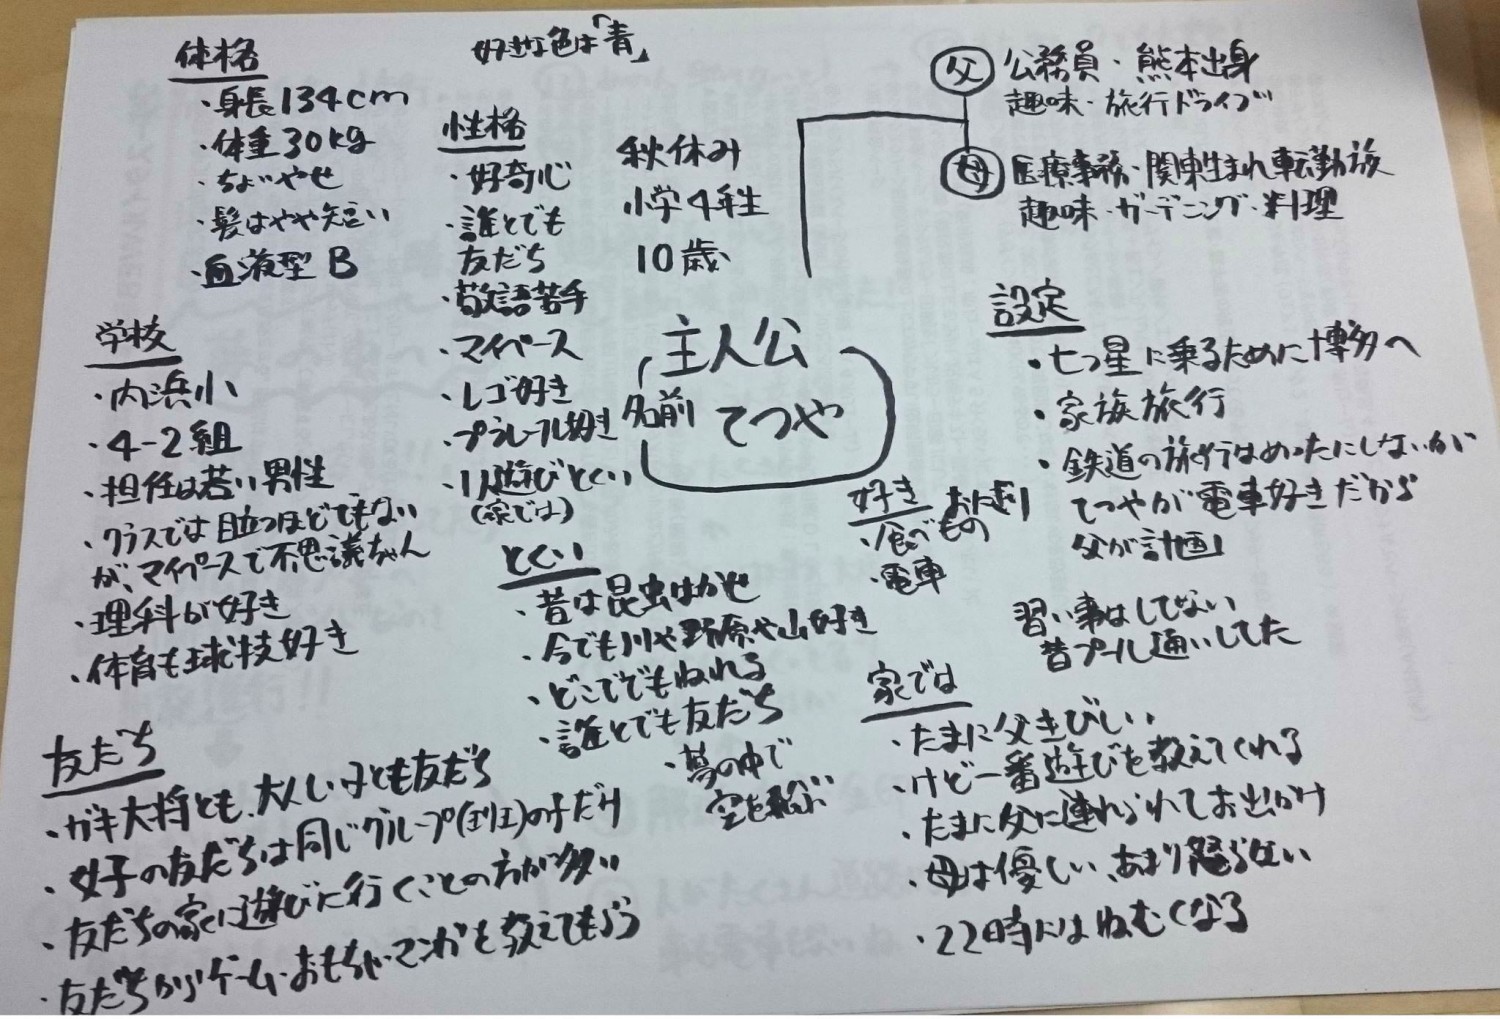 体格
・身長134cm
・体重30kg
・ちょいやせ
・髪はやや短い
・血液型B
好きな色は「青」
性格
・好奇心
・誰とでも
友だち
・敬語苦手
・マイペース
・レゴ好き
・プラレール好き
・1人遊びとくい
(家では)
秋休み
小学4年生
10歳
父 公務員・熊本出身
趣味・旅行ドライブ
母 医療事務・関東生まれ転勤族
趣味・ガーデニング・料理
主人公
名前 てつや
学校
・内浜小
・4-2組
・担任は若い男性
・クラスでは目立つほどでもない
が、マイペースで不思議ちゃん
・理科が好き
・体育も球技好き
設定
・七つ星に乗るために博多へ
・家族旅行
・鉄道の旅行はめったにしないが
てつやが電車好きだから
父が計画
好き おにぎり
・食べもの
・電車
習い事はしてない
昔プール通いしてた
とくい
・昔は昆虫はかせ
・今でも川や野原や山好き
・どこででもねれる
・誰とでも友だち
・夢の中で
空を飛ぶ
家では
・たまに父きびしい
・けど一番遊びを教えてくれる
・たまに父に連れられてお出かけ
・母は優しい、あまり怒らない
・22時にはねむくなる
友だち
・ガキ大将とも、大人しい子とも友だち
・女子の友だちは同じグループ(班)の子だけ
・友だちの家に遊びに行くことの方が多い
・友だちからゲーム・おもちゃ・マンガを教えてもらう